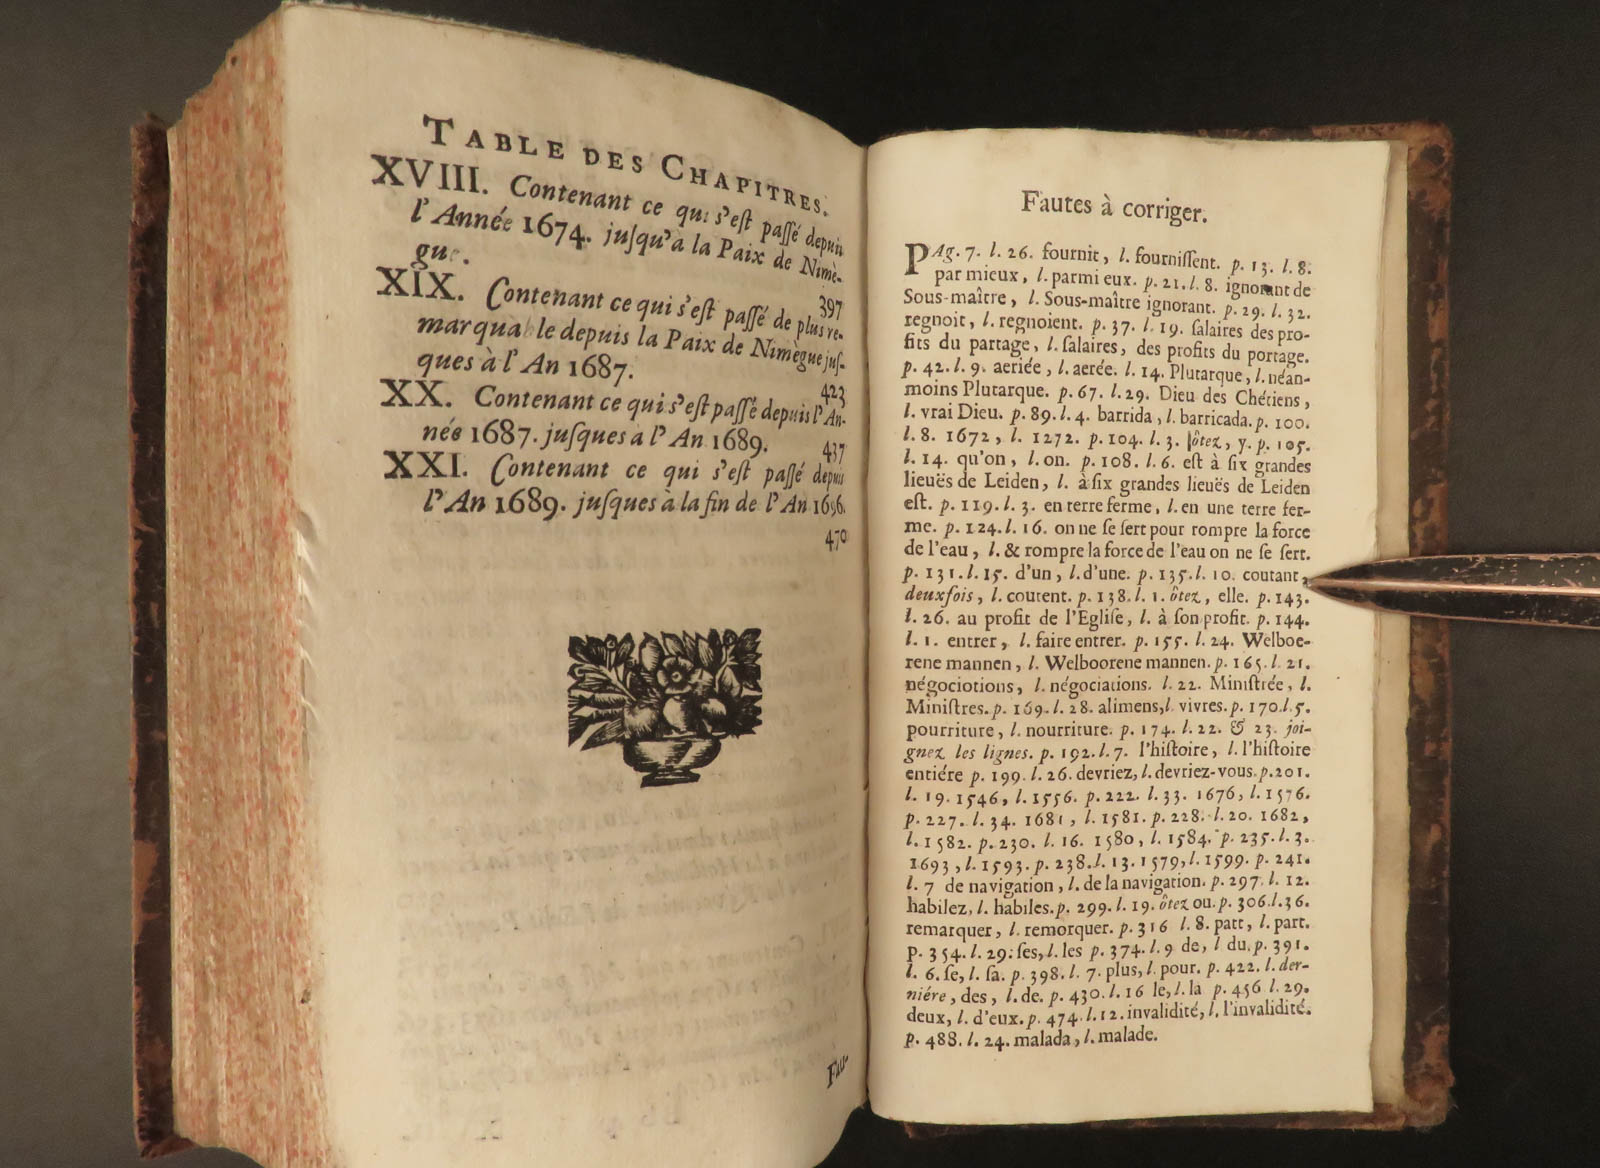 TABLE DES CHAPITRES.
XVIII. Contenant ce qui s'eſt paſſé depuis
l'Année 1674. juſqu'à la Paix de Nimè-
gue.
397
XIX. Contenant ce qui s'eſt paſſé de plus re-
marquable depuis la Paix de Nimègue juſ-
ques à l'An 1687.
423
XX. Contenant ce qui s'eſt paſſé depuis l'An-
née 1687. juſques à l'An 1689.
437
XXI. Contenant ce qui s'eſt paſſé depuis
l'An 1689. juſques à la fin de l'An 1696.
470
Fau-
Fautes à corriger.
PAg. 7. l. 26. fournit, l. fourniſſent. p. 13. l. 8.
par mieux, l. parmi eux. p. 21. l. 8. ignorant de
Sous-maître, l. Sous-maître ignorant. p. 29. l. 32.
regnoit, l. regnoient. p. 37. l. 19. ſalaires des pro-
fits du partage, l. ſalaires, des profits du portage.
p. 42. l. 9. aeriée, l. aerée. l. 14. Plutarque, l. néan-
moins Plutarque. p. 67. l. 29. Dieu des Chétiens,
l. vrai Dieu. p. 89. l. 4. barrida, l. barricada. p. 100.
l. 8. 1672, l. 1272. p. 104. l. 3. ôtez, y. p. 105.
l. 14. qu'on, l. on. p. 108. l. 6. eſt à ſix grandes
lieuës de Leiden, l. à ſix grandes lieuës de Leiden
eſt. p. 119. l. 3. en terre ferme, l. en une terre fer-
me. p. 124. l. 16. on ne ſe ſert pour rompre la force
de l'eau, l. & rompre la force de l'eau on ne ſe ſert.
p. 131. l. 15. d'un, l. d'une. p. 135. l. 10. coutant,
deuxfois, l. coutent. p. 138. l. 1. ôtez, elle. p. 143.
l. 26. au profit de l'Egliſe, l. à ſon profit. p. 144.
l. 1. entrer, l. faire entrer. p. 155. l. 24. Welboe-
rene mannen, l. Welboorene mannen. p. 165. l. 21.
négociotions, l. négociations. l. 22. Miniſtrée, l.
Miniſtres. p. 169. l. 28. alimens, l. vivres. p. 170. l. 5.
pourriture, l. nourriture. p. 174. l. 22. & 23. joi-
gnez les lignes. p. 192. l. 7. l'hiſtoire, l. l'hiſtoire
entiére p. 199. l. 26. devriez, l. devriez-vous. p. 201.
l. 19. 1546, l. 1556. p. 222. l. 33. 1676, l. 1576.
p. 227. l. 34. 1681, l. 1581. p. 228. l. 20. 1682,
l. 1582. p. 230. l. 16. 1580, l. 1584. p. 235. l. 3.
1693, l. 1593. p. 238. l. 13. 1579, l. 1599. p. 241.
l. 7 de navigation, l. de la navigation. p. 297. l. 12.
habilez, l. habiles. p. 299. l. 19. ôtez ou. p. 306. l. 36.
remarquer, l. remorquer. p. 316 l. 8. patt, l. part.
p. 354. l. 29: ſes, l. les p. 374. l. 9 de, l du. p. 391.
l. 6. ſe, l. ſa. p. 398. l. 7. plus, l. pour. p. 422. l. der-
niére, des, l. de. p. 430. l. 16 le, l. la p. 456 l. 29.
deux, l. d'eux. p. 474. l. 12. invalidité, l. l'invalidité.
p. 488. l. 24. malada, l. malade.